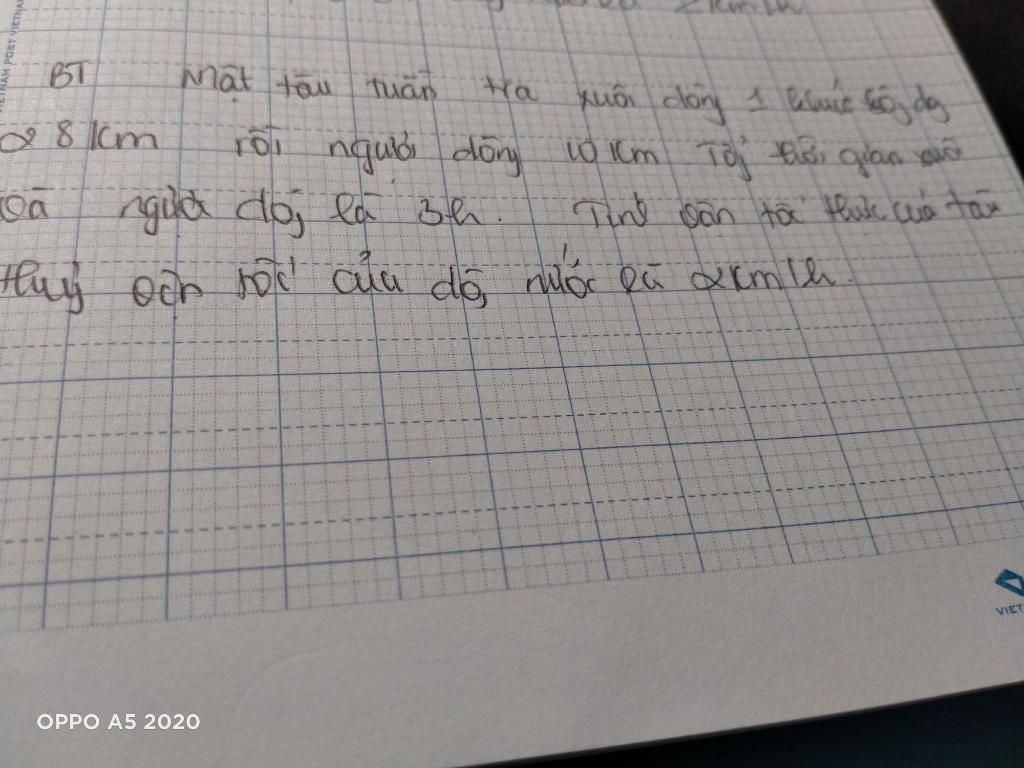 2km/h
BT Một tàu tuần tra xuôi dòng 1 khúc sông dg
28 km rồi ngược dòng 10 km Tổng thời gian xuôi
và ngược dòng là 3h. Tính vận tốc thực của tàu
thuỷ vận tốc của dòng nước là 2km/h.
VIET
OPPO A5 2020